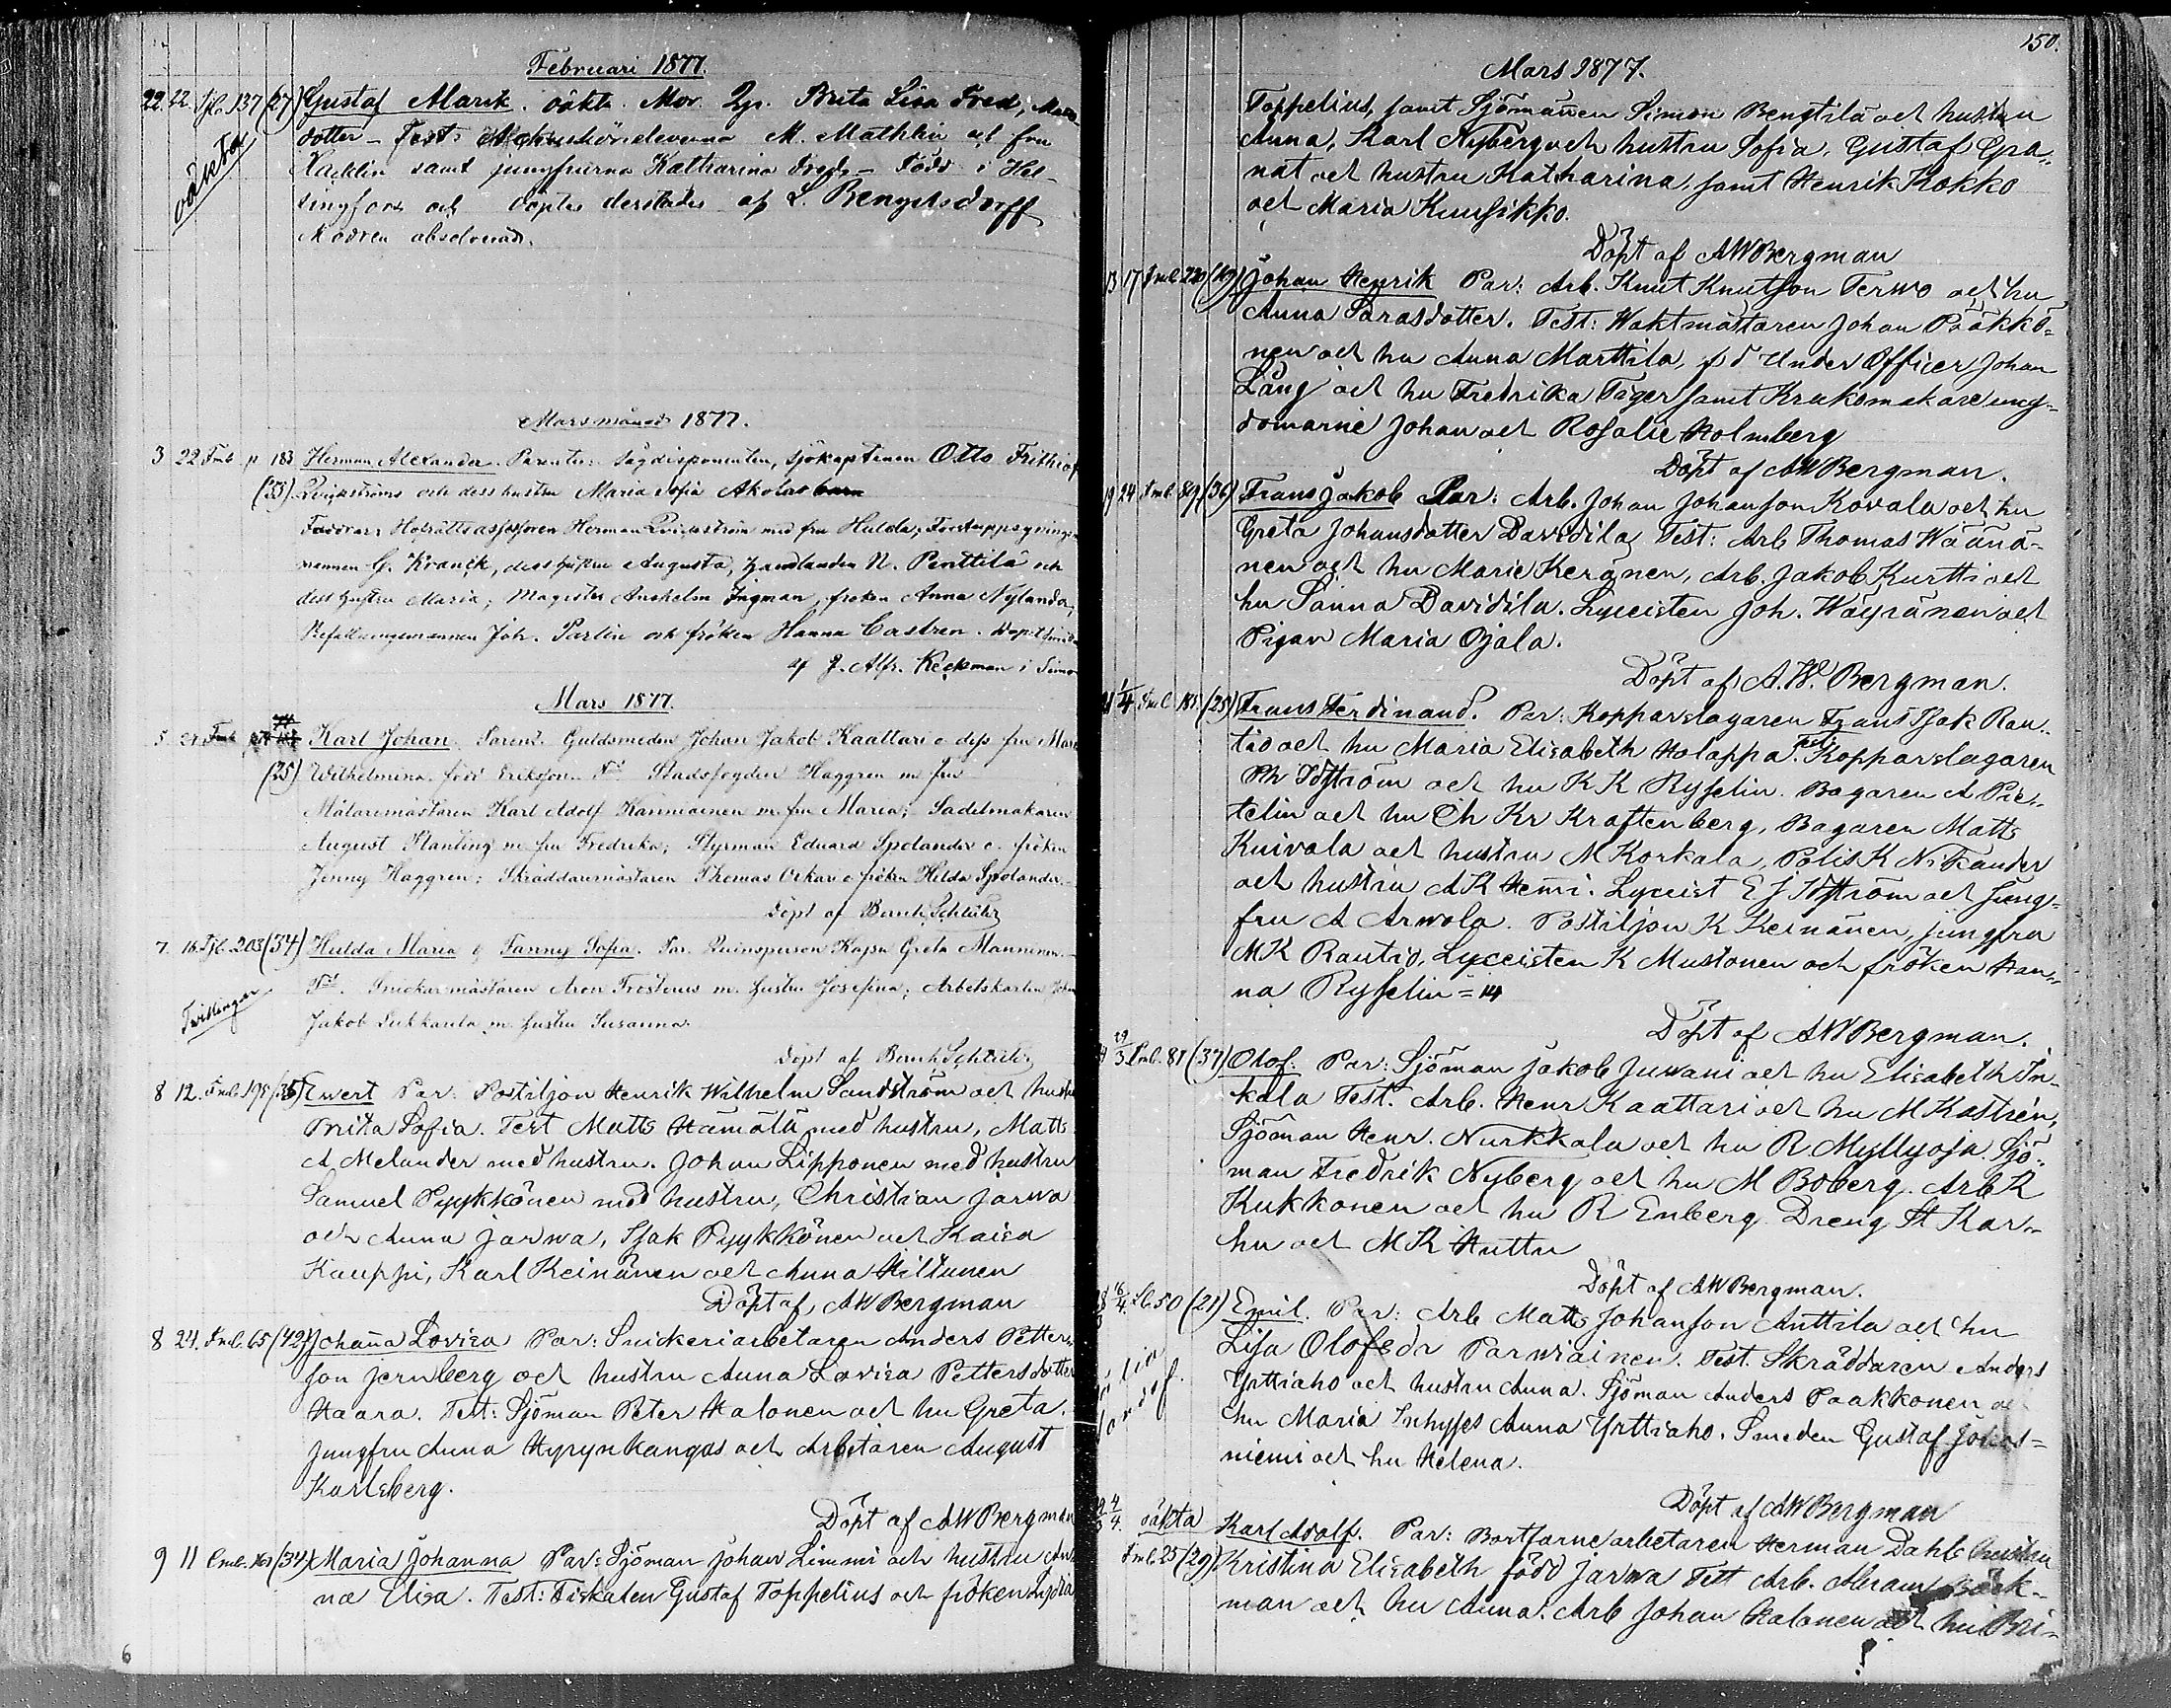 Februari 1877.
22. 22. 137 (27) Gustaf Marik. oäkta. Mor Brita Lisa Fred,
dotter - Test: M. Mathlin och fru
oäkta
samt jungfrurna Katharina - Född i Hel-
singfors och döptes derstädes af L. Bengelsdorff
Modren absolverad.
Marsmånad 1877.
3 22 Fmb. p 183 Herman Alexander. Parenter: Sågdisponenten, Sjökaptenen Otto Frithiof
(33) och dess hustru Maria Sofia
Faddrar: Hofrättsassessoren Herman med fru Hulda;
mannen G. Kranck, dess hustru Augusta, handlanden N. Penttilä och
dess hustru Maria; Magister Anshelm Ingman, fröken Anna Nylander,
Befallningsmannen Joh. Partin och fröken Hanna Castren.
af J. Alfr. Keckman i Simo
Mars 1877.
5 Fmb Karl Johan. Parent. Guldsmeden Johan Jakob Kaattari o dess fru Mari
(25) Wilhelmina född Eriksson. Stadsfogden Haggren m fru
Målaremästaren Karl Adolf Kanniainen m. fru Maria; Sadelmakaren
August Planting m. fru Fredrika; Styrman Eduard Spolander o. fröken
Jenny Haggren; Skräddaremästaren Thomas Oskar o fröken Hilda Spolander.
döpt af Bernh. Schlüter
7. 16. 203 (34) Hulda Maria & Fanny Sofia. Par. Qvinsperson Kajsa Greta Manninen.
Tvillingar
Snickarmästaren Aron Frosterus m. hustru Josefina; Arbetskarlen Johan
Jakob Leukkanla m. hustru Susanna.
döpt af Bernh. Schlüter
8 12. Fmb. 198 (35) Ewert Par: Postiljon Henrik Wilhelm Sandström och hustru
Brita Sofia. Test Matts Hämälä med hustru, Matts
A Melander med hustru. Johan Lipponen med hustru
Samuel Pyykkönen med hustru, Christian Jarwa
och Anna Jarwa, Isak Pyykkönen och Kaisa
Kauppi, Karl Keinänen och Anna Hiltunen
Döpt af AW Bergman
8 24. Fmb. 65 (42) Johanna Lovisa Par: Snickeriarbetaren Anders Petters
son Jernberg och hustru Anna Lovisa Pettersdotter
Haara. Test: Sjöman Peter Halonen och hu Greta.
Jungfru Anna Hyrynkangas och Arbetaren August
Karlsberg.
Döpt af AW Bergman
9 11 (34) Maria Johanna Par: Sjöman Johan Limmi och hustru An
na Elisa. Test: Fiskalen Gustaf Toppelius och fröken Lydia
6
150.
Mars 1877.
Toppelius, samt Sjömannen Simon Bengtilä och hustru
Anna, Karl Nyberg och hustru Sofia, Gustaf Gra„
nat och hustru Katharina, samt Henrik Kokko
och Maria Kuusikko.
Döpt af AWBergman
13 17 Fmb. 220 (40) Johan Henrik Par: Arb. Knut Knutsson Terwo och hu
Anna Sarasdotter. Test: Waktmästaren Johan Pääkkö-
nen och hu Anna Marttila, f d Under Officer Johan
Lång och hu Fredrika Tiger samt Krukomakareung-
domarne Johan och Rosalie Holmberg
Döpt af AW Bergman.
19 24 Fmb. 89 (36) Frans Jakob Par: Arb. Johan Johansson Kovala och hu
Greta Johansdotter Davidila, Test: Arb Thomas Wäänä-
nen och hu Marie Keränen, Arb. Jakob Kurtti och
hu Sanna Davidila. Lyceisten Joh. Wäyränen och
Pigan Maria Ojala.
Döpt af A.W. Bergman.
21 1/4 Fmb 185 (25) Frans Ferdinand. Par: Kopparslagaren Frans Isak Rau„
tio och hu Maria Elisabeth Holappa. Test: Kopparslagaren
Ph Idström och hu K K Rysselin. Bagaren A Pie„
telin och hu Ch Kr Kraftenberg, Bagaren Matts
Kuivala och hustru M Korkala, Polis K Nikander
och hustru A K Hemi. Lyceist E J Idström och Jung-
fru A Arwola. Postiljon K Keinänen, jungfru
MK Rautio, Lyceisten K Mustonen och fröken Han„
na Rysselin = 14
Döpt af AWBergman.
29/3 Fmb. 81 (37) Olof. Par: Sjöman Jakob Juwani och hu Elisabeth In-
kala Test. Arb. Henr Kaattari och hu M Kastrén,
Sjöman Henr. Nurkkala och hu R Myllyoja. Sjö„
man Fredrik Nyberg och hu M Boberg. Arb K
Kukkonen och hu R Enberg. Dreng H Kar„
hu och M K Huttu
Döpt af AW Bergman.
50 (21) Emil. Par: Arb Matts Johansson Anttila och hu
Lisa Olofsdr Parwiainen. Test. Skräddaren Anders
Yrttiaho och hustru Anna. Sjöman Anders Paakkonen och
hu Maria Inhyses Anna Yrttiaho. Smeden Gustaf
niemi och hu Helena.
Döpt af AW Bergman
oäkta Karl Adolf. Par: Bortfarne arbetaren Herman Dahl
Fmb. 25 (29) Kristina Elisabeth född Jarwa Test Arb. Abram Bäck-
man och hu Anna. Arb Johan Halonen och hu Bri-